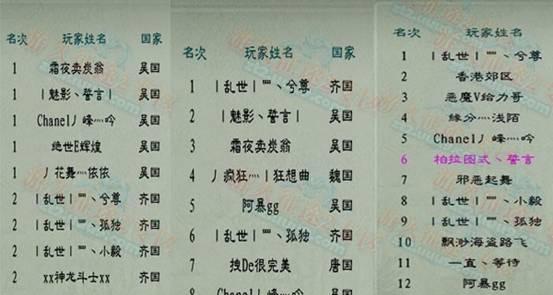 名次 玩家姓名 国家
1 霜夜卖炭翁 吴国
1 丨魅影、誓言丨 吴国
1 Chanel丿峰灬吟 吴国
1 绝世E辉煌 吴国
1 丿花舞灬依依 吴国
2 丨乱世丨灬丶兮尊 齐国
2 丨乱世丨灬丶孤独 齐国
2 丨乱世丨灬丶小毅 齐国
2 xx神龙斗士xx 齐国
名次 玩家姓名 国家
1 丨乱世丨灬丶兮尊 齐国
2 丨魅影丶誓言丨 吴国
3 霜夜卖炭翁 吴国
4 丿疯狂灬丨狂想曲 魏国
5 阿暴gg 吴国
6 丨乱世丨灬丶孤独 齐国
7 拽De很完美 唐国
8 Chanel丿峰灬吟 吴国
名次 玩家姓名
1 丨乱世丨灬丶兮尊
2 香港郊区
3 恶魔V给力哥
4 缘分灬浅陌
5 Chanel丿峰灬吟
6 柏拉图式丶誓言
7 邪恶起舞
8 丨乱世丨灬丶小毅
9 丨乱世丨灬丶孤独
10 飘渺海盗路飞
11 一直丶等待
12 阿暴gg